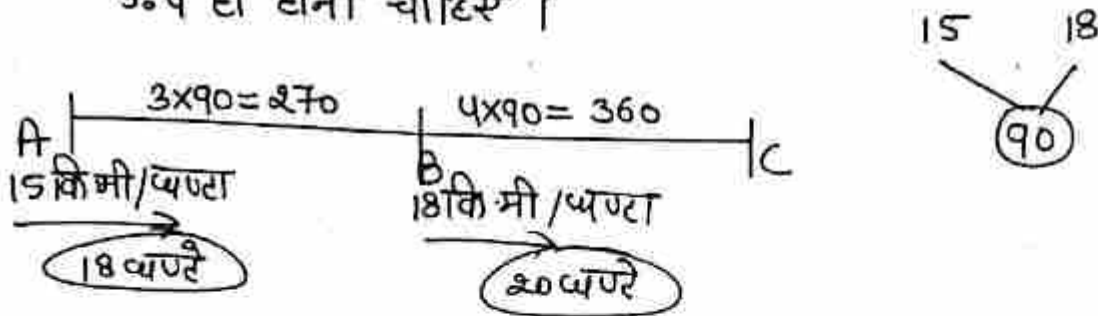 3:4 ही होना चाहिए ।
15 18
90
3×90=270 4×90=360
A B C
15 कि मी/घण्टा 18 कि.मी /घण्टा
18 घण्टे 20 घण्टे